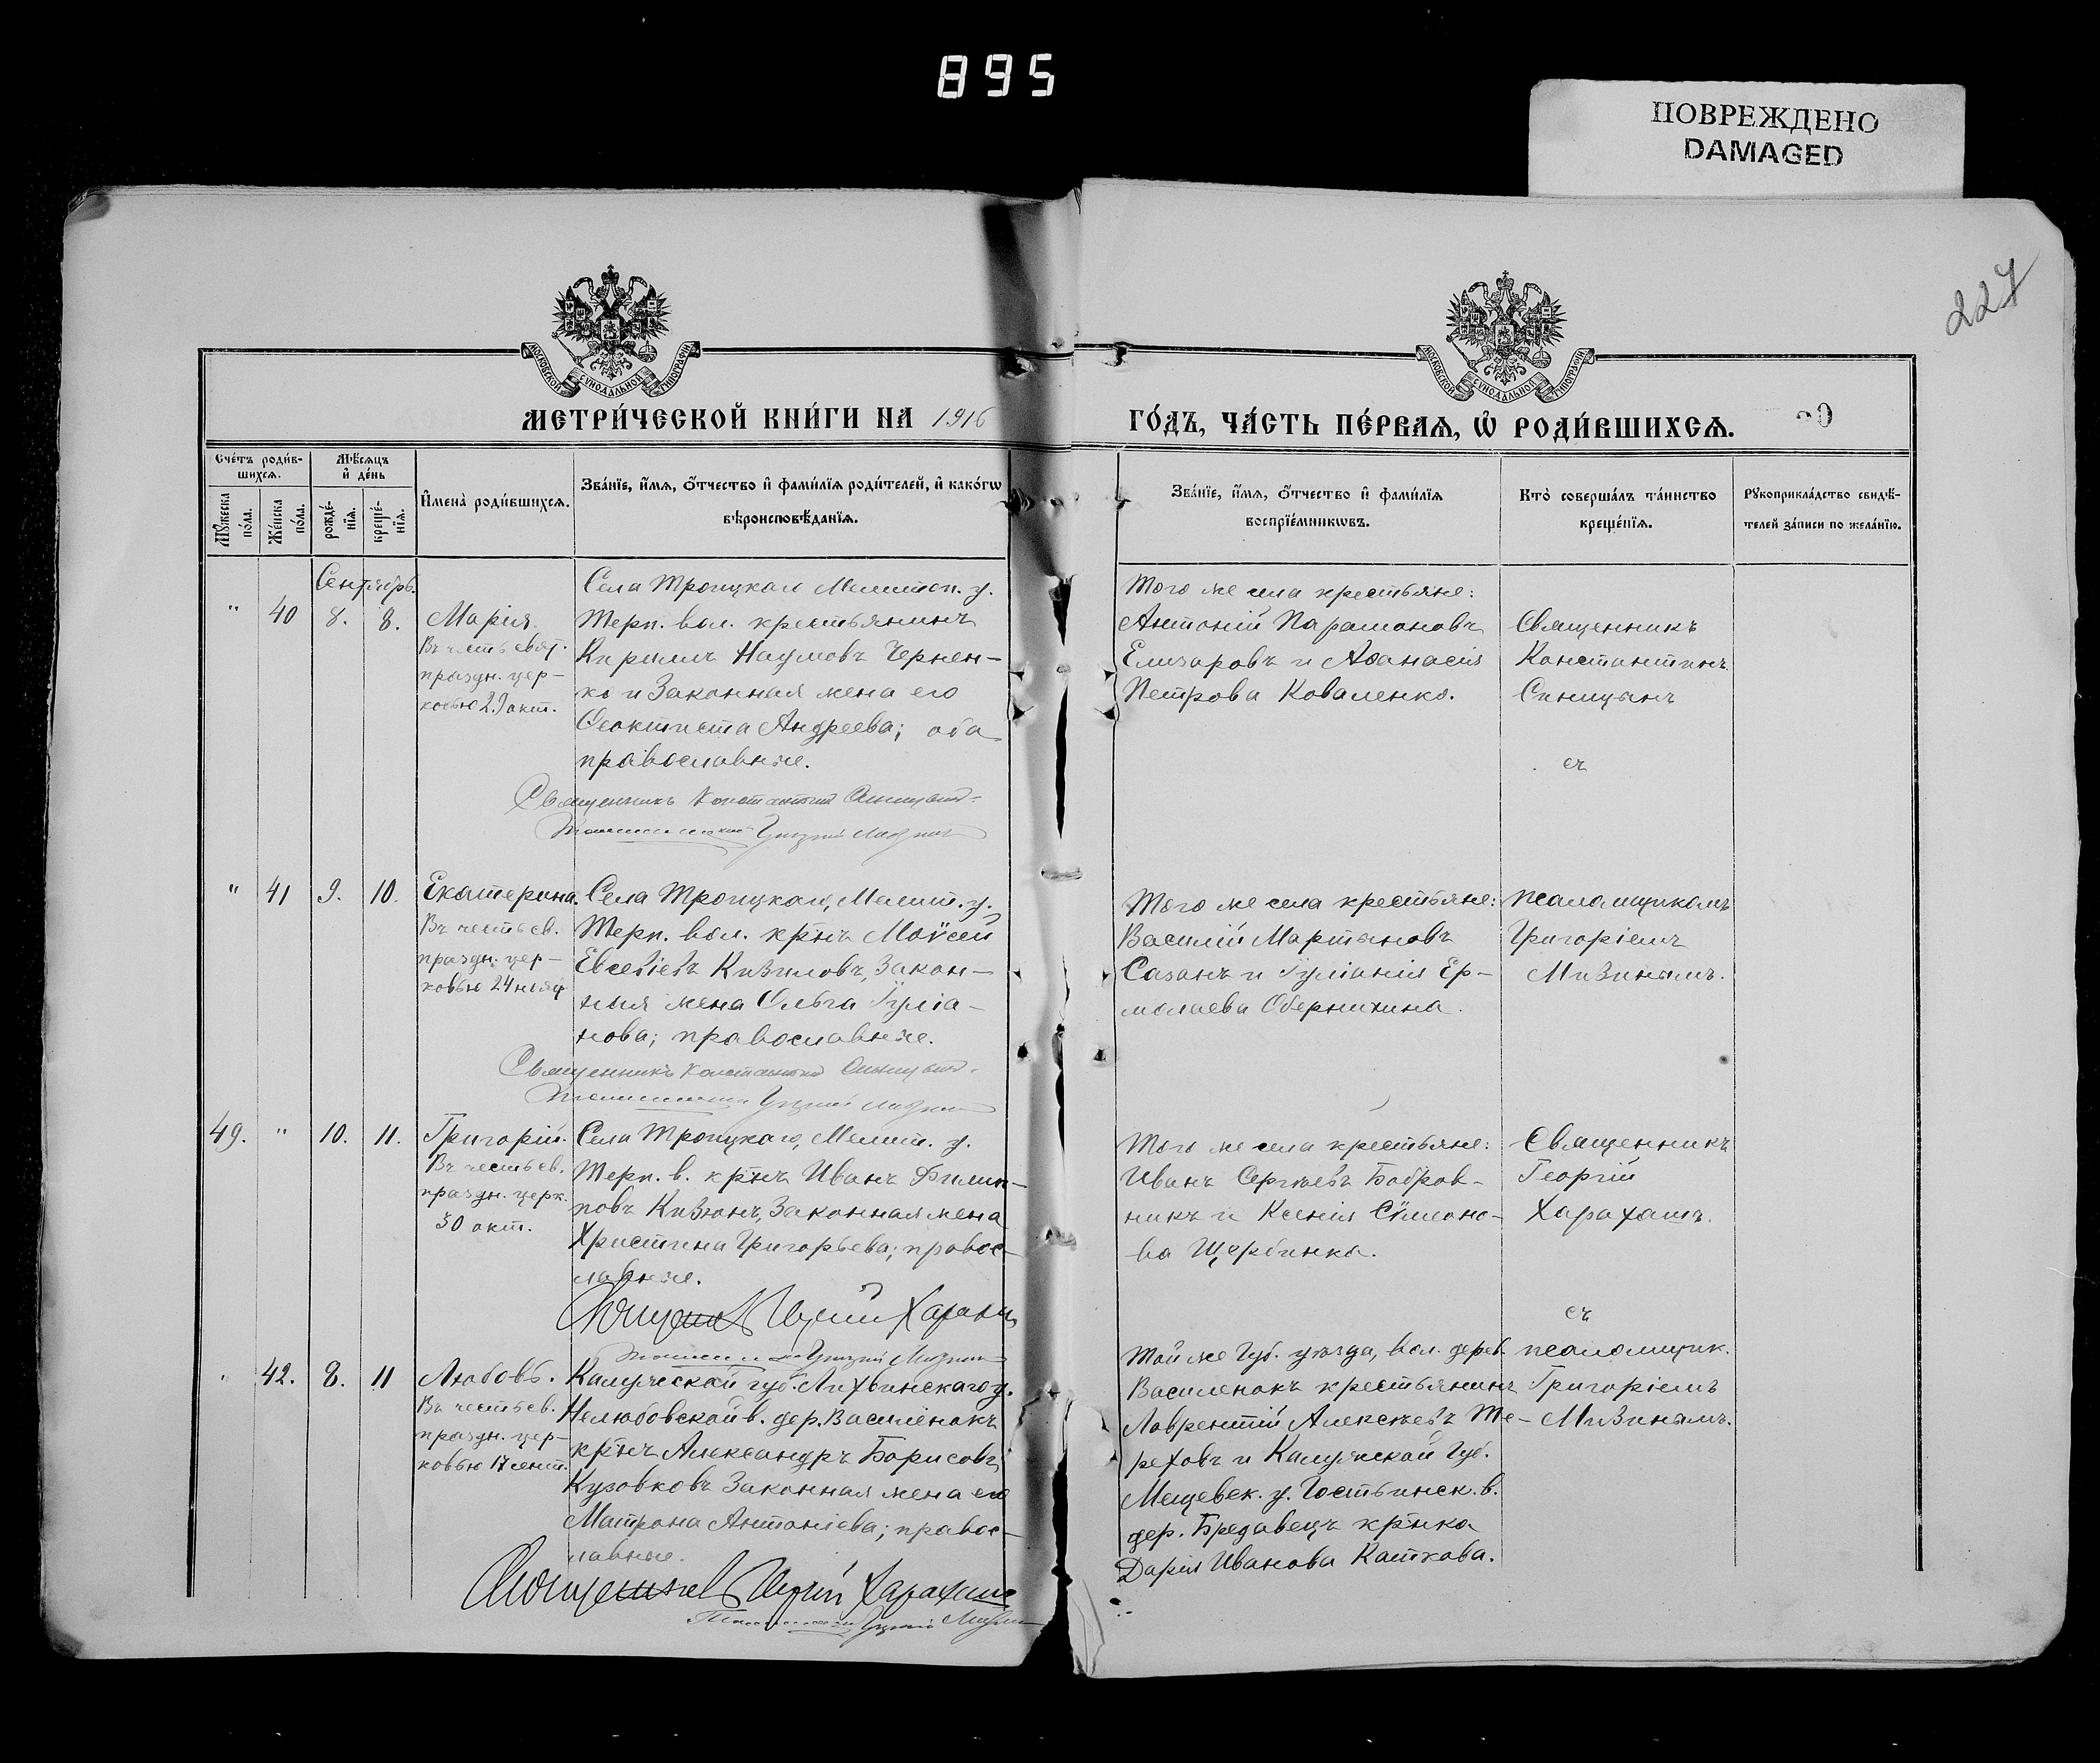 895
ПОВРЕЖДЕНО
DAMAGED
227
МОСКОВСКОЙ СѴНОДАЛЬНОЙ ТИПОГРАФІИ
МОСКОВСКОЙ СѴНОДАЛЬНОЙ ТИПОГРАФІИ
МЕТРИ́ЧЕСКОЙ КНИ́ГИ НА 1916
ГО́ДЪ, ЧА́СТЬ ПЕ́РВАЯ, Ѽ РОДИ́ВШИХСЯ.
Сче́тъ роди́в-
шихся.
Мѣ́сяцъ
и҆ де́нь
Мꙋ́жеска
по́ла.
Же́нска
по́ла.
рожде́-
нїѧ.
креще́-
нїѧ.
И҆мена̀ роди́вшихсѧ.
Зва́нїе, и҆́мѧ, ѻ҆́тчество и҆ фами́лїѧ роди́телей, и҆ како́гѡ
вѣроисповѣ́данїѧ.
Зва́нїе, и҆́мѧ, ѻ҆́тчество и҆ фами́лїѧ
воспрїе́мникѡвъ.
Кто̀ соверша́лъ та́инство
креще́нїѧ.
Рꙋкоприкла́дство свидѣ́-
телей за́писи по жела́нїю.
Сентябрь.
" 40 8. 8.
Марія.
Въ честь свят.
праздн. цер-
ковью 29 окт.
Села Троицкаго Мелитоп. у.
Терп. вол. крестьянинъ
Кирилъ Наумовъ Чернен-
ко и законная жена его
Феоктиста Андреева; оба
православные.
Священникъ Константинъ Синицынъ
Того же села крестьяне:
Антоній Парамоновъ
Елизаровъ и Афанасія
Петрова Коваленко.
Священникъ
Константинъ
Синицынъ
съ
" 41 9. 10.
Екатерина.
Въ честь св.
праздн. цер-
ковью 24 нояб.
Села Троицкаго, Мелит. у.
Терп. вол. кр̃нъ Моѵсей
Евсевіевъ Кизиловъ, закон-
ная жена Ольга Іуліа-
нова; православные.
Священникъ Константинъ Синицынъ
Того же села крестьяне:
Василій Мартыновъ
Сазанъ и Іуліанія Ер-
молаева Обернихина.
псаломщикомъ
Григоріемъ
Мизинымъ.
49. " 10. 11.
Григорій.
Въ честь св.
праздн. церк.
30 окт.
Села Троицкаго, Мелит. у.
Терп. в. кр̃нъ Иванъ Филип-
повъ Кизюнъ, законная жена
Христина Григорьева; правос-
лавные.
Священникъ Георгій Харахашъ
Того же села крестьяне:
Иванъ Сергѣевъ Бобров-
никъ и Ксенія Сѵмеоно-
ва Щербинка.
Священникъ
Георгій
Харахашъ.
съ
псаломщик.
Григоріемъ
Мизинымъ.
" 42. 8. 11
Любовь.
Въ честь св.
праздн. цер-
ковью 17 сент.
Калужской губ. Лихвинскаго у.
Нелюбовской в. дер. Василенокъ
кр̃нъ Александръ Борисовъ
Кузовковъ законная жена его
Матрона Антоніева; правос-
лавные.
Священникъ Георгій Харахашъ
Той же Губ. уѣзда, вол. дерев.
Василенокъ крестьянинъ
Лаврентій Алексѣевъ Те-
реховъ и Калужской Губ.
Мещевск. у. Гостьинск. в.
дер. Бредавецъ кр̃нка
Дарія Иванова Каткова.